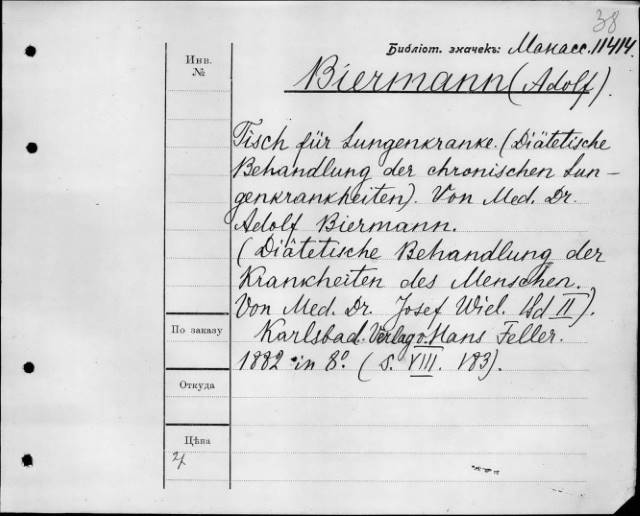 38
Библіот. значекъ: Манасс. 11414.
Инв.
№
Biermann (Adolf).
Tisch für Lungenkranke. (Diätetische
Behandlung der chronischen Lun-
genkrankheiten). Von Med. Dr.
Adolf Biermann.
(Diätetische Behandlung der
Krankheiten des Menschen.
Von Med. Dr. Josef Wiel. Bd II).
По заказу
Karlsbad. Verlag v. Hans Feller.
1882 in 8° (S. VIII. 183).
Откуда
Цѣна